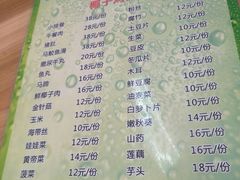 椰子
小炒腐 38元/份
牛餐肉 38元/份
猪肚 38元/份
马鲛鱼滑 28元/份
撒尿牛丸 20元/份
鱼丸 18元/份
马蹄 16元/份
鲜椰子肉 10元/份
金针菇 12元/份
玉米 12元/份
海带丝 10元/份
娃娃菜 12元/份
黄帝菜 14元/份
菠菜 12元/份
粉丝 12元/份
腐竹 12元/份
土豆片 10元/份
生菜 12元/份
豆皮 10元/份
冬瓜片 12元/份
木耳 12元/份
鲜豆腐 12元/份
油麦菜 12元/份
白萝卜片 10元/份
嫩秋葵 14元/份
山药 14元/份
莲藕 14元/份
芋头 18元/份